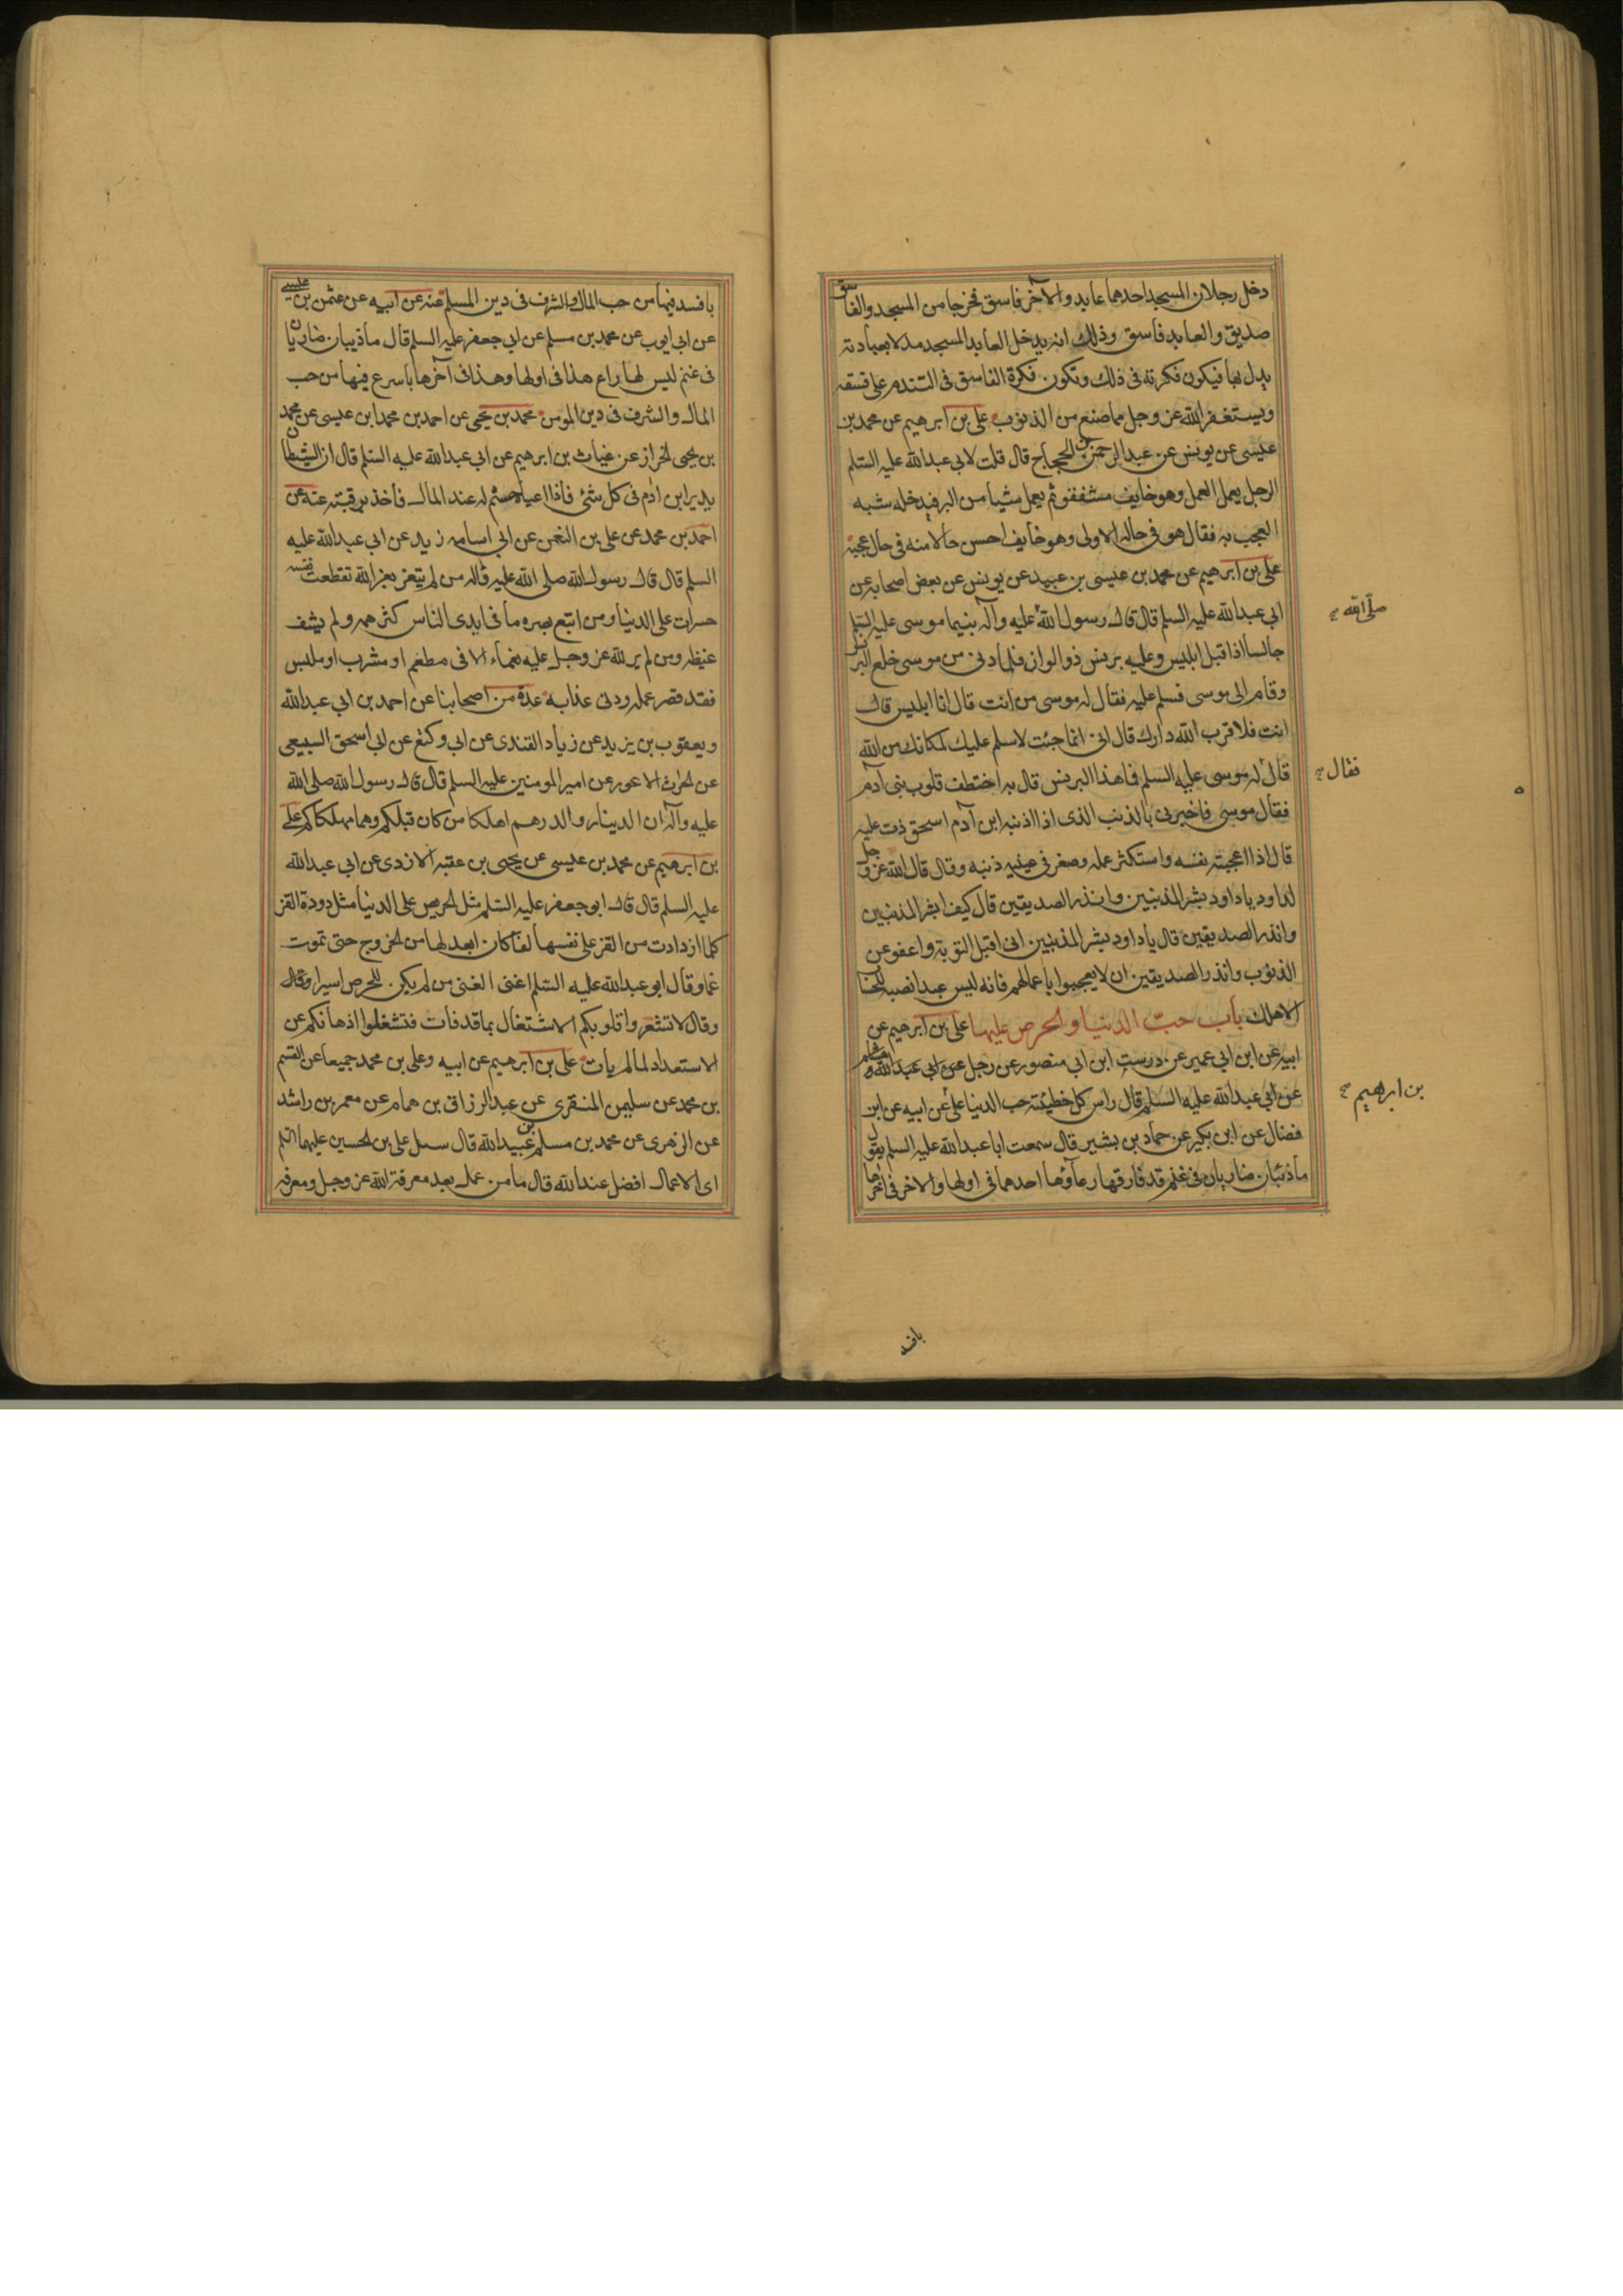 دخل رجلان المسجد احدهما عابد والآخر فاسق فخرجا من المسجد والفاسق
صديق والعابد فاسق وذلك انه يدخل العابد المسجد مدلا بعبادته
يدل بها فيكون فكرته فى ذلك وتكون فكرة الفاسق فى التندم على فسقه
ويستغفر الله عز وجل مما صنع من الذنوب على بن ابرهيم عن محمد بن
عليسى عن يونس عن عبد الرحمن بن الحجاج قال قلت لابى عبد الله عليه السلم
الرجل يعمل العمل وهو خايف مشفقو ثم يعمل شيأ من البر فيدخله شبه
العجب به فقال هو فى حاله الاولى وهو خايف احسن حالا منه فى حال عجبه
على بن ابرهيم عن محمد بن عيسى بن عبيد عن يونس عن بعض اصحابه عن
ابى عبد الله عليه السلم قال قال رسول الله عليه وآله بينما موسى عليه السلم
صلى الله
جالسا اذا قبل ابليس وعليه برنس ذو الوان فلما دنى من موسى خلع البرنس
وقام الى موسى فسلم عليه فقال له موسى من انت قال انا ابليس قال
انت فلا قرب الله دارك قال انى انما جئت لاسلم عليك لمكانك من الله
قال له موسى عليه السلم فما هذا البرنس قال به اختطف قلوب بنى آدم
فقال
فقال موسى فاخبرنى بالذنب الذى اذا اذنبه ابن آدم استحوذت عليه
قال اذا اعجبته نفسه واستكثر عمله وصغر فى عينيه ذنبه وقال قال الله عز وجل
لداود يا داود بشر المذنبين وانذر الصديقين قال كيف ابشر المذنبين
وانذر الصديقين قال يا داود بشر المذنبين انى اقبل التوبة واعفو عن
الذنوب وانذر الصديقين ان لا يعجبوا باعمالهم فانه ليس عبد انصبه للحساب
الا هلك باب حب الدنيا والحرص عليها على بن ابرهيم عن
ابيه عن ابن ابى عمير عن درست ابن ابى منصور عن رجل عن ابى عبد الله وهشام
عن ابى عبد الله عليه السلم قال راس كل خطيئة حب الدنيا على عن ابيه عن ابن
بن ابراهيم
فضال عن ابن بكير عن حماد بن بشير قال سمعت ابا عبد الله عليه السلم يقول
ما ذئبان ضاريان فى غنم قد فارقها رعآؤها احدهما فى اولها والاخر فى اخرها
بافسد
بافسد فيها من حب المال والشرف فى دين المسلم عنه عن ابيه عن عثمن بن عليسى
عن ابى ايوب عن محمد بن مسلم عن ابى جعفر عليه السلم قال ما ذيبان ضاريان
فى غنم ليس لها راع هذا فى اولها وهذا فى آخرها باسرع فيها من حب
المال والشرف فى دين المومن محمد بن يحيى عن احمد بن محمد ابن عيسى عن محمد
بن يحيى الخراز عن غياث بن ابرهيم عن ابى عبد الله عليه السلم قال ان الشيطان
يدير ابن ادم فى كل شئ فاذا اعياه جثم له عند المال فأخذ برقبته عنه عن
احمد بن محمد عن على بن النعمن عن ابى اسامه زيد عن ابى عبد الله عليه
السلم قال قال رسول الله صلى الله عليه وآله من لم يتعز بعزالله تقطعت نفسه
حسرات على الدنيا ومن اتبع بصره ما فى ايدى الناس كثر همه ولم يشف
غيظه ومن لم ير لله عز وجل عليه نعمآء الا فى مطعم او مشرب او ملبس
فقد قصر عمله ودنى عذابه عدة من اصحابنا عن احمد بن ابى عبد الله
ويعقوب بن يزيد عن زياد القندى عن ابى وكنع عن ابى اسحق السبيعى
عن الحرث الاعور عن امير المومنين عليه السلم قال قال رسول الله صلى الله
عليه وآله ان الدينار والدرهم اهلكا من كان قبلكم وهما مهلكاكم على
بن ابرهيم عن محمد بن عليسى عن يحيى بن عقبه الازدى عن ابى عبد الله
عليه السلم قال قال ابو جعفر عليه السلم مثل الحريص على الدنيا مثل دودة القز
كلما ازدادت من القز على نفسها لفا كان ابعد لها من الخروج حتى تموت
غما وقال ابو عبد الله عليه السلم اغنى الغنى من لم يكن للحرص اسيرا وقال
وقال لا تشعروا قلوبكم الاشتغال بما قد فات فتشغلوا اذهانكم عن
الاستعداد لما لم يأت على بن ابرهيم عن ابيه وعلى بن محمد جميعا عن القسم
بن محمد عن سليمن المنقرى عن عبد الرزاق بن همام عن معمر بن راشد
عن الزهرى عن محمد بن مسلم بن عبيد الله قال سئل على بن الحسين عليهما السلم
اى الاعمال افضل عند الله قال ما من عمل بعد معرفة الله عز وجل ومعرفه